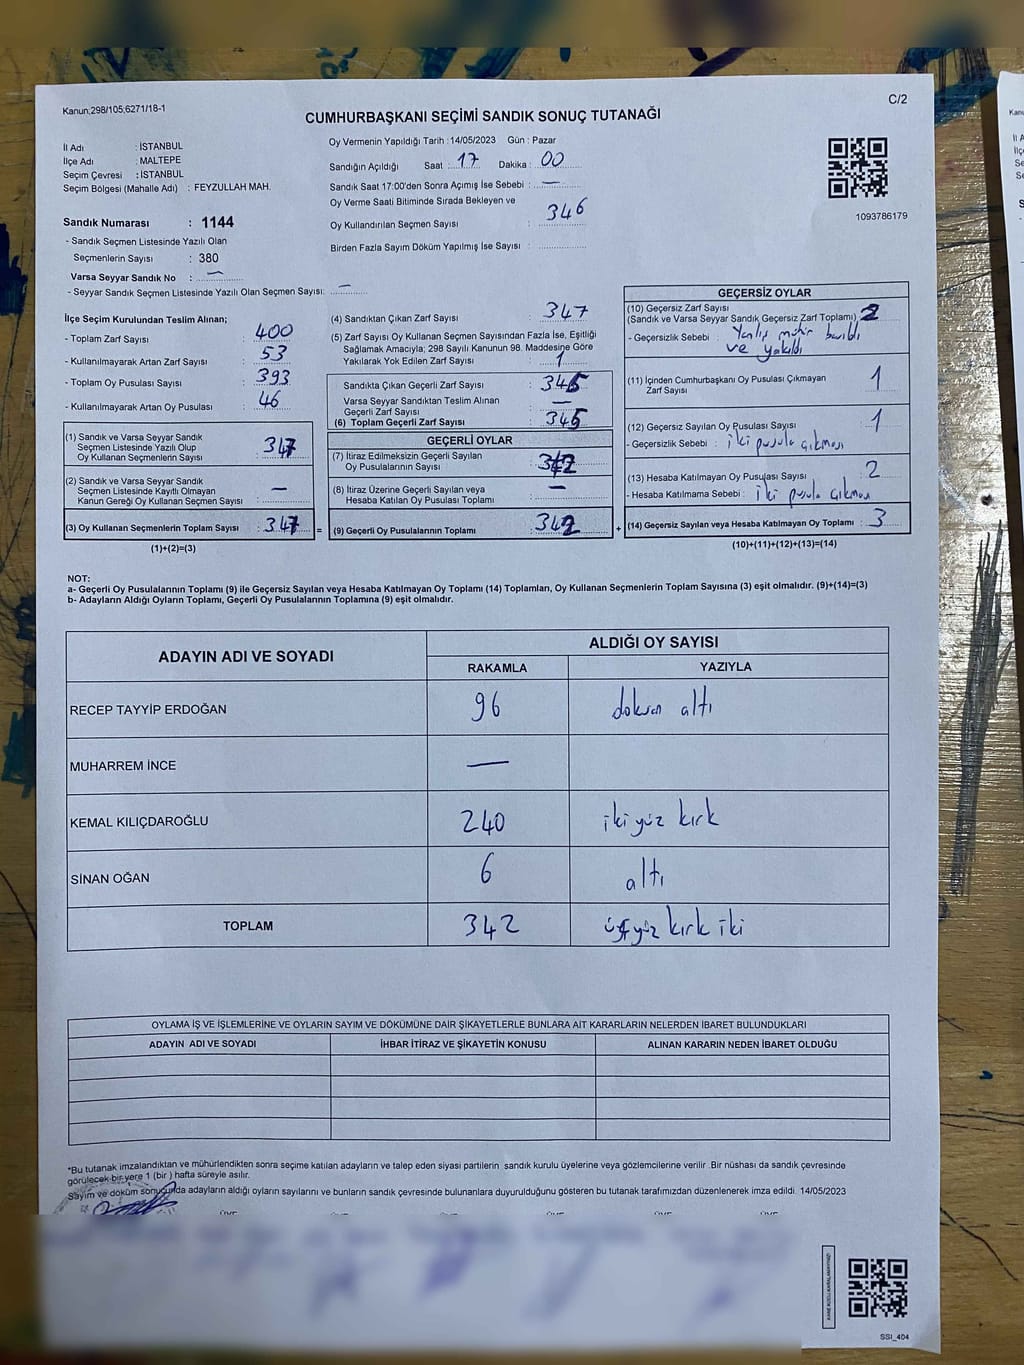 Kanun;298/105;6271/18-1
C/2
CUMHURBAŞKANI SEÇİMİ SANDIK SONUÇ TUTANAĞI
İl Adı : İSTANBUL
İlçe Adı : MALTEPE
Seçim Çevresi : İSTANBUL
Seçim Bölgesi (Mahalle Adı) : FEYZULLAH MAH.
Sandık Numarası : 1144
- Sandık Seçmen Listesinde Yazılı Olan
Seçmenlerin Sayısı : 380
Varsa Seyyar Sandık No : —
- Seyyar Sandık Seçmen Listesinde Yazılı Olan Seçmen Sayısı: —
Oy Vermenin Yapıldığı Tarih : 14/05/2023 Gün : Pazar
Sandığın Açıldığı Saat : 17 Dakika : 00
Sandık Saat 17:00'den Sonra Açımış İse Sebebi : —
Oy Verme Saati Bitiminde Sırada Bekleyen ve
Oy Kullandırılan Seçmen Sayısı : 346
Birden Fazla Sayım Döküm Yapılmış İse Sayısı :
1093786179
İlçe Seçim Kurulundan Teslim Alınan;
- Toplam Zarf Sayısı : 400
- Kullanılmayarak Artan Zarf Sayısı : 53
- Toplam Oy Pusulası Sayısı : 393
- Kullanılmayarak Artan Oy Pusulası : 46
(1) Sandık ve Varsa Seyyar Sandık
Seçmen Listesinde Yazılı Olup
Oy Kullanan Seçmenlerin Sayısı : 347
(2) Sandık ve Varsa Seyyar Sandık
Seçmen Listesinde Kayıtlı Olmayan
Kanun Gereği Oy Kullanan Seçmen Sayısı : —
(3) Oy Kullanan Seçmenlerin Toplam Sayısı : 347 =
(1)+(2)=(3)
(4) Sandıktan Çıkan Zarf Sayısı : 347
(5) Zarf Sayısı Oy Kullanan Seçmen Sayısından Fazla İse, Eşitliği
Sağlamak Amacıyla; 298 Sayılı Kanunun 98. Maddesine Göre
Yakılarak Yok Edilen Zarf Sayısı : 1
Sandıkta Çıkan Geçerli Zarf Sayısı : 345
Varsa Seyyar Sandıktan Teslim Alınan
Geçerli Zarf Sayısı : —
(6) Toplam Geçerli Zarf Sayısı : 345
GEÇERLİ OYLAR
(7) İtiraz Edilmeksizin Geçerli Sayılan
Oy Pusulalarının Sayısı : 342
(8) İtiraz Üzerine Geçerli Sayılan veya
Hesaba Katılan Oy Pusulası Toplamı : —
(9) Geçerli Oy Pusulalarının Toplamı : 342 +
GEÇERSİZ OYLAR
(10) Geçersiz Zarf Sayısı
(Sandık ve Varsa Seyyar Sandık Geçersiz Zarf Toplamı) : 2
- Geçersizlik Sebebi : Yanlış mühür basıldı
ve yakıldı
(11) İçinden Cumhurbaşkanı Oy Pusulası Çıkmayan
Zarf Sayısı : 1
(12) Geçersiz Sayılan Oy Pusulası Sayısı : 1
- Geçersizlik Sebebi : iki pusula çıkması
(13) Hesaba Katılmayan Oy Pusulası Sayısı : 2
- Hesaba Katılmama Sebebi : iki pusula çıkması
(14) Geçersiz Sayılan veya Hesaba Katılmayan Oy Toplamı : 3
(10)+(11)+(12)+(13)=(14)
NOT:
a- Geçerli Oy Pusulalarının Toplamı (9) ile Geçersiz Sayılan veya Hesaba Katılmayan Oy Toplamı (14) Toplamları, Oy Kullanan Seçmenlerin Toplam Sayısına (3) eşit olmalıdır. (9)+(14)=(3)
b- Adayların Aldığı Oyların Toplamı, Geçerli Oy Pusulalarının Toplamına (9) eşit olmalıdır.
ADAYIN ADI VE SOYADI ALDIĞI OY SAYISI
RAKAMLA YAZIYLA
RECEP TAYYİP ERDOĞAN 96 doksan altı
MUHARREM İNCE —
KEMAL KILIÇDAROĞLU 240 iki yüz kırk
SİNAN OĞAN 6 altı
TOPLAM 342 üçyüz kırk iki
OYLAMA İŞ VE İŞLEMLERİNE VE OYLARIN SAYIM VE DÖKÜMÜNE DAİR ŞİKAYETLERLE BUNLARA AİT KARARLARIN NELERDEN İBARET BULUNDUKLARI
ADAYIN ADI VE SOYADI İHBAR İTİRAZ VE ŞİKAYETİN KONUSU ALINAN KARARIN NEDEN İBARET OLDUĞU
*Bu tutanak imzalandıktan ve mühürlendikten sonra seçime katılan adayların ve talep eden siyasi partilerin sandık kurulu üyelerine veya gözlemcilerine verilir .Bir nüshası da sandık çevresinde
görülecek bir yere 1 (bir ) hafta süreyle asılır.
Sayım ve döküm sonucunda adayların aldığı oyların sayılarını ve bunların sandık çevresinde bulunanlara duyurulduğunu gösteren bu tutanak tarafımızdan düzenlenerek imza edildi. 14/05/2023
SSI_404